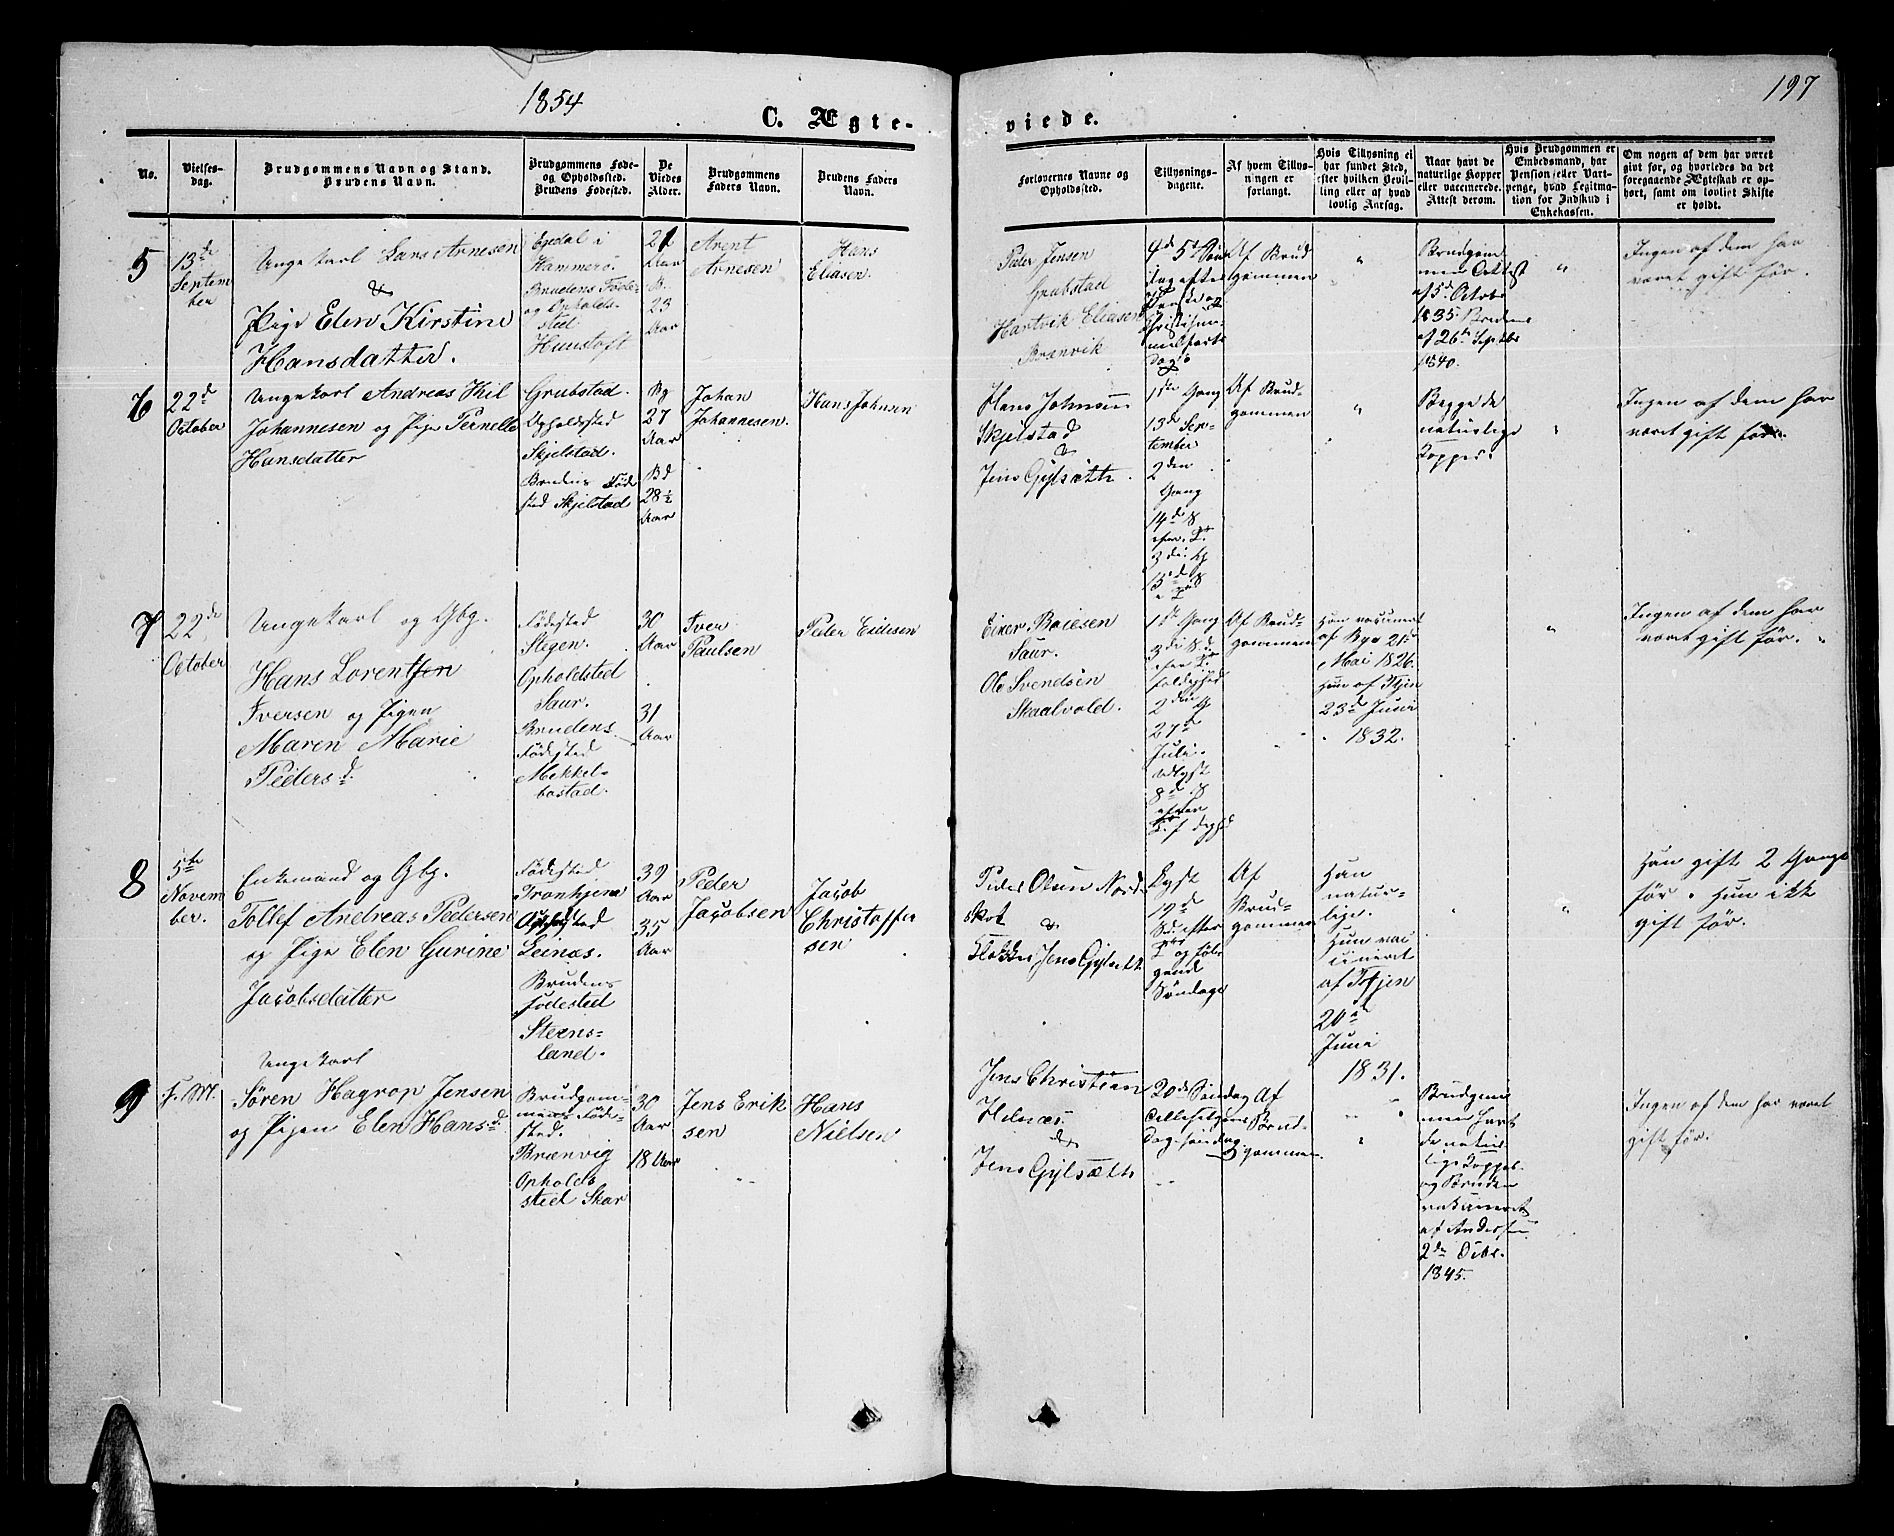 1854
197
C. Ægte-
viede.
No.
Vielses-
dag.
Brudgommens Navn og Stand.
Brudens Navn.
Brudgommens Føde-
og Opholdssted.
Brudens Fødested.
De
Viedes
Alder.
Brudgommens
Faders Navn.
Brudens Faders
Navn.
Forlovernes Navne og
Opholdssted.
Tillysnings-
dagene.
Af hvem Tillys-
ningen er
forlangt.
Hvis Tillysning ei
har fundet Sted,
efter hvilken Bevil-
ling eller af hvad
lovlig Aarsag.
Naar havt de
naturlige Kopper
eller vaccinerede.
Attest derom.
Hvis Brudgommen er
Embedsmand, har
Pension eller Vart-
penge, hvad Legitima-
tion for Indskud i
Enkekassen.
Om nogen af dem har været
givt før, og hvorledes da det
foregaaende Ægteskab er op-
hørt, samt om lovligt Skifte
er holdt.
5
13de
Septem
ber
Ungekarl Lars Arnesen
&
Pige Elen Kirstine
Hansdatter.
Egedal i
Hammerø.
Brudens Føde
og Opholds-
sted
Hunstoft
21
Aar
B.
23
Aar
Arent
Arnesen
Hans
Eliasen
Peder Jensen
Grubstad
Hartvik Eliasen
Brænvik
4de 5te Søn
dag efter
Af Brud
gommen
"
Brudgom
men
af 5te Octobr
1835 Brudens
af 26te Septbr
1840.
"
Ingen af dem har
været gift før.
6
22de
October
Ungekarl Andreas Kiil
Johannesen og Pige Pernelle
Hansdatter
Grubstad.
Opholdssted
Skjelstad.
Brudens Føde
sted Skjelstad
Bg
27
Aar
Bd
28½
Aar
Johan
Johannesen.
Hans Johnsen
Hans Johnsen
Skjelstad
&
Jens Gylseth
1ste Gang
13de Sep-
tember
2den
Gang
14de S
Af Brud-
gommen
"
Begge de
naturlige
Kopper.
Ingen af dem har
været gift før.
7
22de
October
Ungekarl og Gbg.
Hans Lorentsen
Iversen og Pigen
Maren Marie
Pedersd.
Fødested
Stegen.
Opholdsted
Saur.
Brudens
Fødested
Mekkel-
bostad.
30
Aar
31
Aar
Iver
Paulsen
Peder Eidesen
Einer Boiesen
Saur.
Ole Svendsen
Skaalvold.
1ste Gang
27de
Juli.
Af Brud-
gommen
Han vaccineret
af Bye 21de
Mai 1826.
Hun af Stjen
23de Juni
1832.
"
Ingen af dem har
været gift før.
8
5te
Novem
ber.
Enkemand og Gbg.
Tollef Andreas Pedersen
og Pige Elen Gurine
Jacobsdatter
Fødested
Tronhjem
Opholdsted
Leinæs.
Brudens
Fødested
Steens-
land.
39
Aar
35
Aar
Peder
Jacobsen
Jacob
Christoffer
sen
Peder Olsen Nord
skot
&
Klokker Jens Gylseth
Lyst
19de
S. efter
og føl-
gende
Søndage
Af
Brud-
gommen
Han
natur-
lige.
Hun vac
cineret
af Stjen
20de
Juni
1831.
"
Han gift 2 Gange
før. Hun ikke
gift før.
9
s. M.
Ungekarl
Søren Hagrop Jensen
og Pigen Elen Hansd.
Brudgom-
mens Føde-
sted.
Brænvig
Opholds
sted Skar
30
Aar
18 Aar
Jens Erik
sen
Hans
Nielsen
Jens Christian
Helnæs
&
Jens Gylseth
20de Søndag
Af
Brud-
gommen.
Brudgom
men havt
de natur
lige Kopper
og Bruden
vaccineret
af Andersen
2de Octbr.
1845.
Ingen af dem har været
gift før.